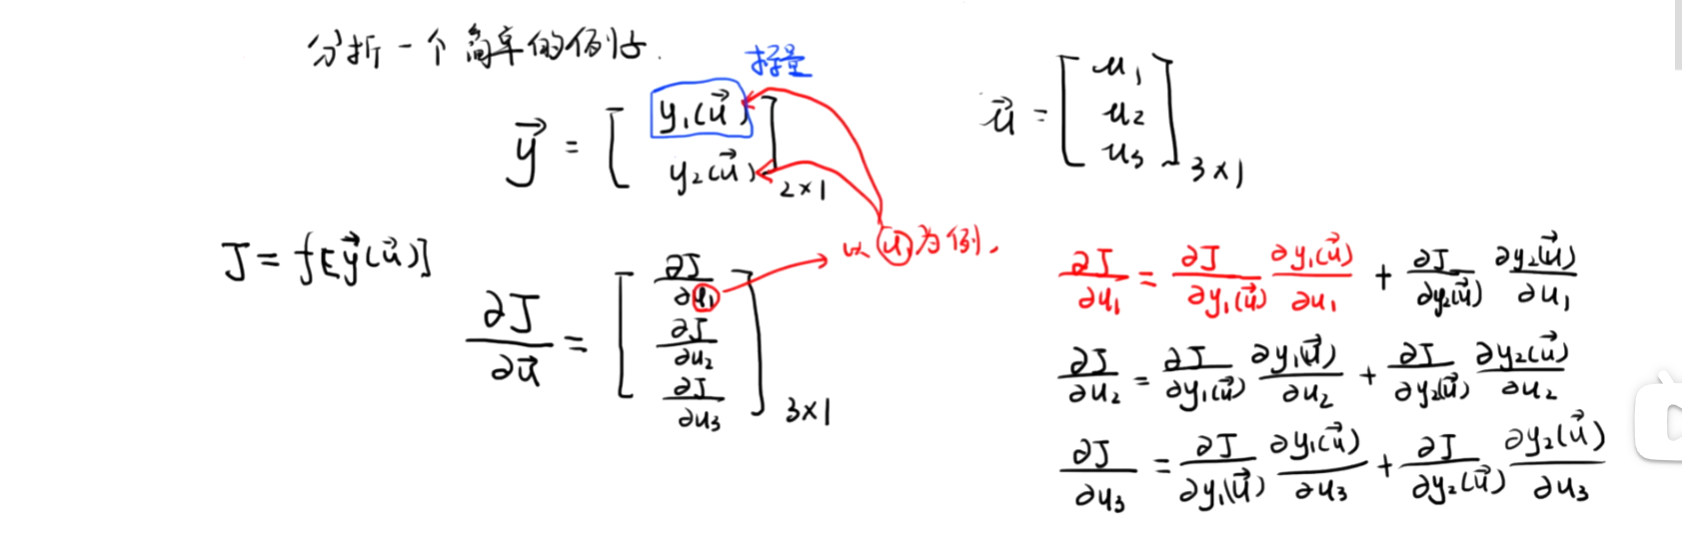 分析一个简单的例子.
标量
\vec{y} = \begin{bmatrix} y_1(\vec{u}) \\ y_2(\vec{u}) \end{bmatrix}_{2×1}
\vec{u} = \begin{bmatrix} u_1 \\ u_2 \\ u_3 \end{bmatrix}_{3×1}
J = f[\vec{y}(\vec{u})]
\frac{∂J}{∂\vec{u}} = \begin{bmatrix} \frac{∂J}{∂u_1} \\ \frac{∂J}{∂u_2} \\ \frac{∂J}{∂u_3} \end{bmatrix}_{3×1}
以 u_1 为例.
\frac{∂J}{∂u_1} = \frac{∂J}{∂y_1(\vec{u})} \frac{∂y_1(\vec{u})}{∂u_1} + \frac{∂J}{∂y_2(\vec{u})} \frac{∂y_2(\vec{u})}{∂u_1}
\frac{∂J}{∂u_2} = \frac{∂J}{∂y_1(\vec{u})} \frac{∂y_1(\vec{u})}{∂u_2} + \frac{∂J}{∂y_2(\vec{u})} \frac{∂y_2(\vec{u})}{∂u_2}
\frac{∂J}{∂u_3} = \frac{∂J}{∂y_1(\vec{u})} \frac{∂y_1(\vec{u})}{∂u_3} + \frac{∂J}{∂y_2(\vec{u})} \frac{∂y_2(\vec{u})}{∂u_3}